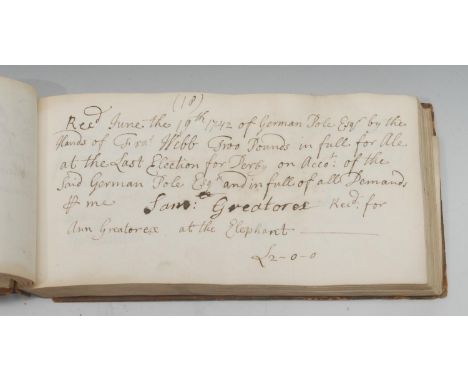 (18)
Recd June the 19th 1742 of German Pole Esqr by the
Hands of Fra: Webb Two Pounds in full for Ale
at the Last Election for Derby on Acct. of the
Said German Pole Esqr and in full of all Demands
⅌ me Samll Greatorex Recd. for
Ann Greatorex at the Elephant
£2-0-0